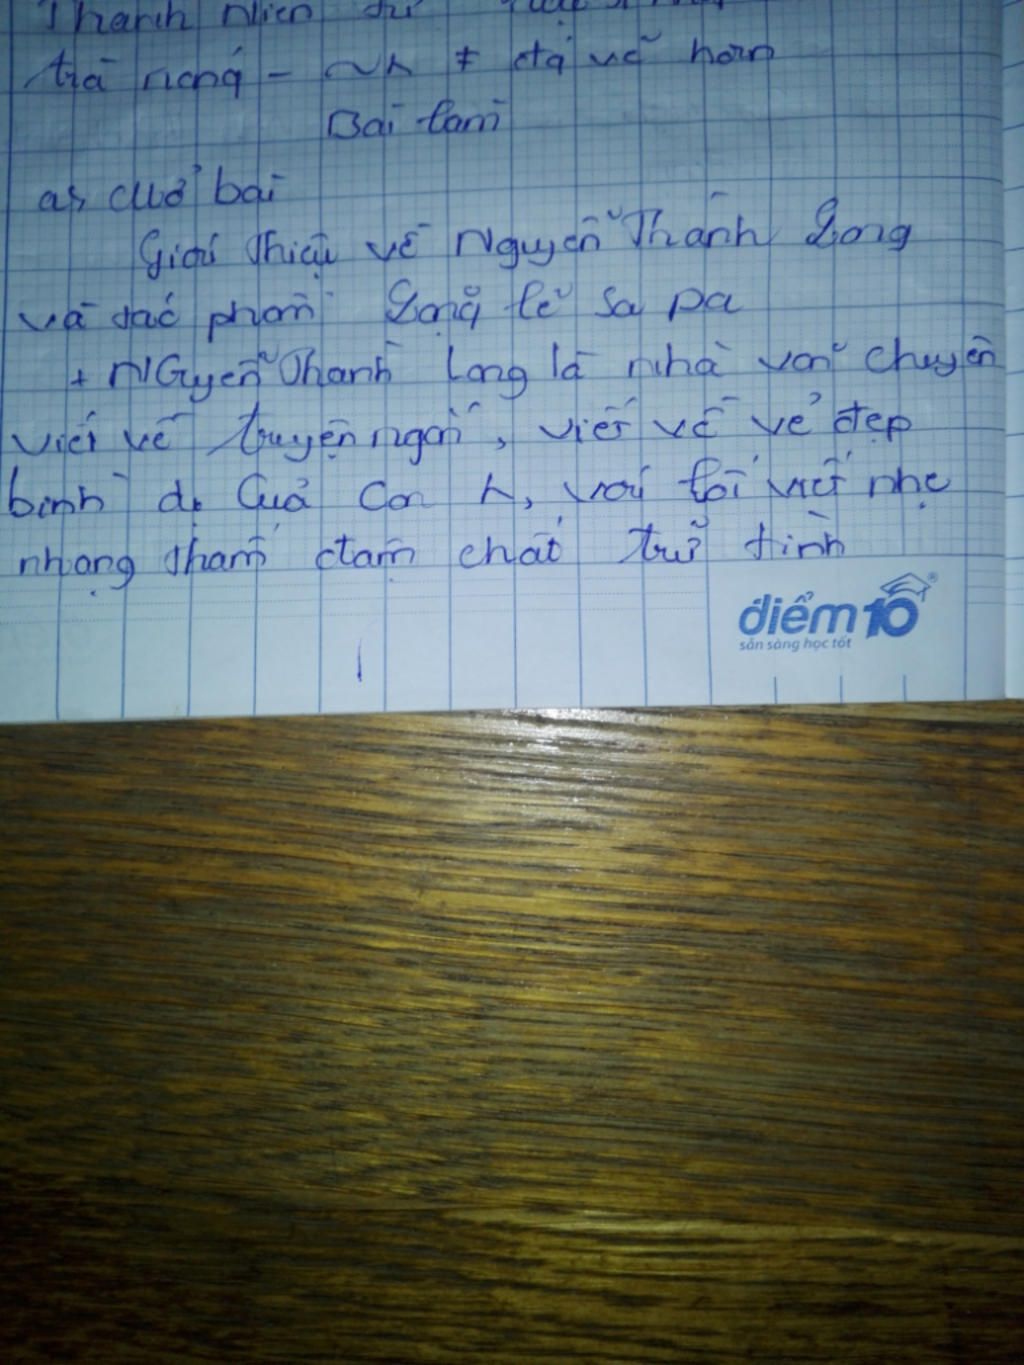 Thanh niên
trả riêng - ~ h ≠ đt và hơn
Bài làm
a, Mở bài
Giới thiệu về Nguyễn Thành Long
và tác phẩm Lặng lẽ Sa Pa
+ NGuyễn Thành Long là nhà văn chuyên
viết về truyện ngắn, viết về vẻ đẹp
bình dị của con h, với lối viết nhẹ
nhàng thấm đậm chất trữ tình
điểm 10 ®
sẵn sàng học tốt